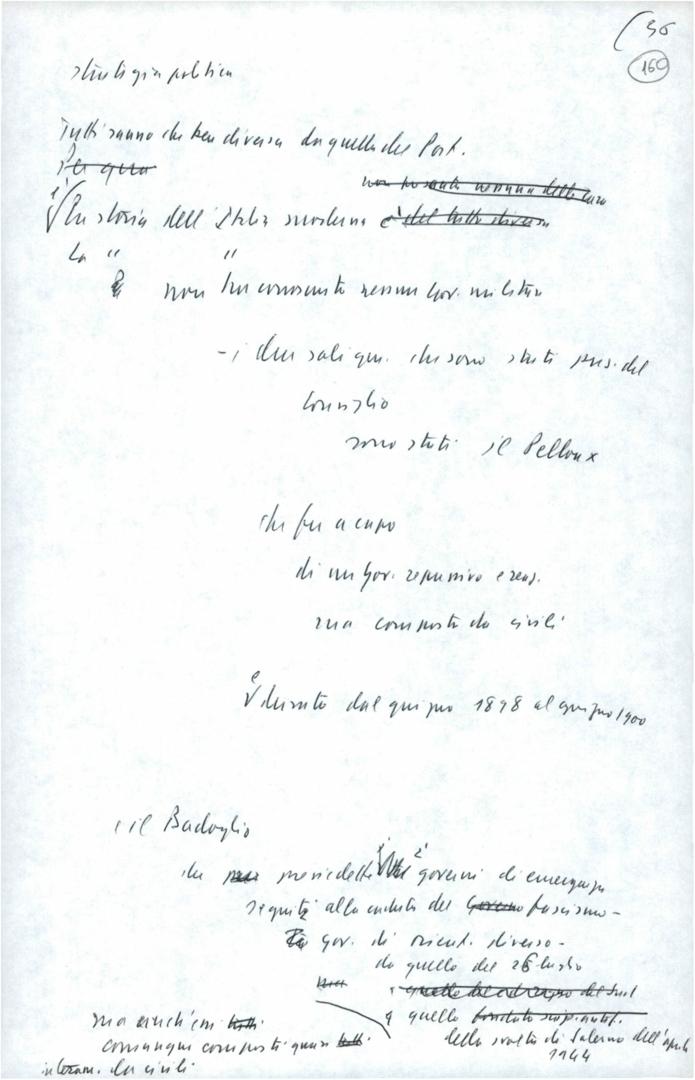 (36
160
strategia politica
Tutti sanno che ben diversa da quella del Port.
Per quan
non ha avuto nessuna delle
La storia dell'Italia moderna è del tutto diversa
La " "
non ha conosciuto nessun Gov. militare
- i due soli gen. che sono stati pres. del
Consiglio
sono stati il Pelloux
che fu a capo
di un Gov. repressivo e reaz.
ma composto da civili
e durato dal giugno 1898 al giugno 1900
e il Badoglio
che presiedette i 2 governi di emergenza
seguiti alla caduta del Governo fascismo -
gov. di orient. diverso -
da quello del 26 luglio
ma
e quello del del Sud
a quello
ma anch'essi tutti
della svolta di Salerno dell'aprile
comunque composti quasi tutti.
1944
interam. da civili